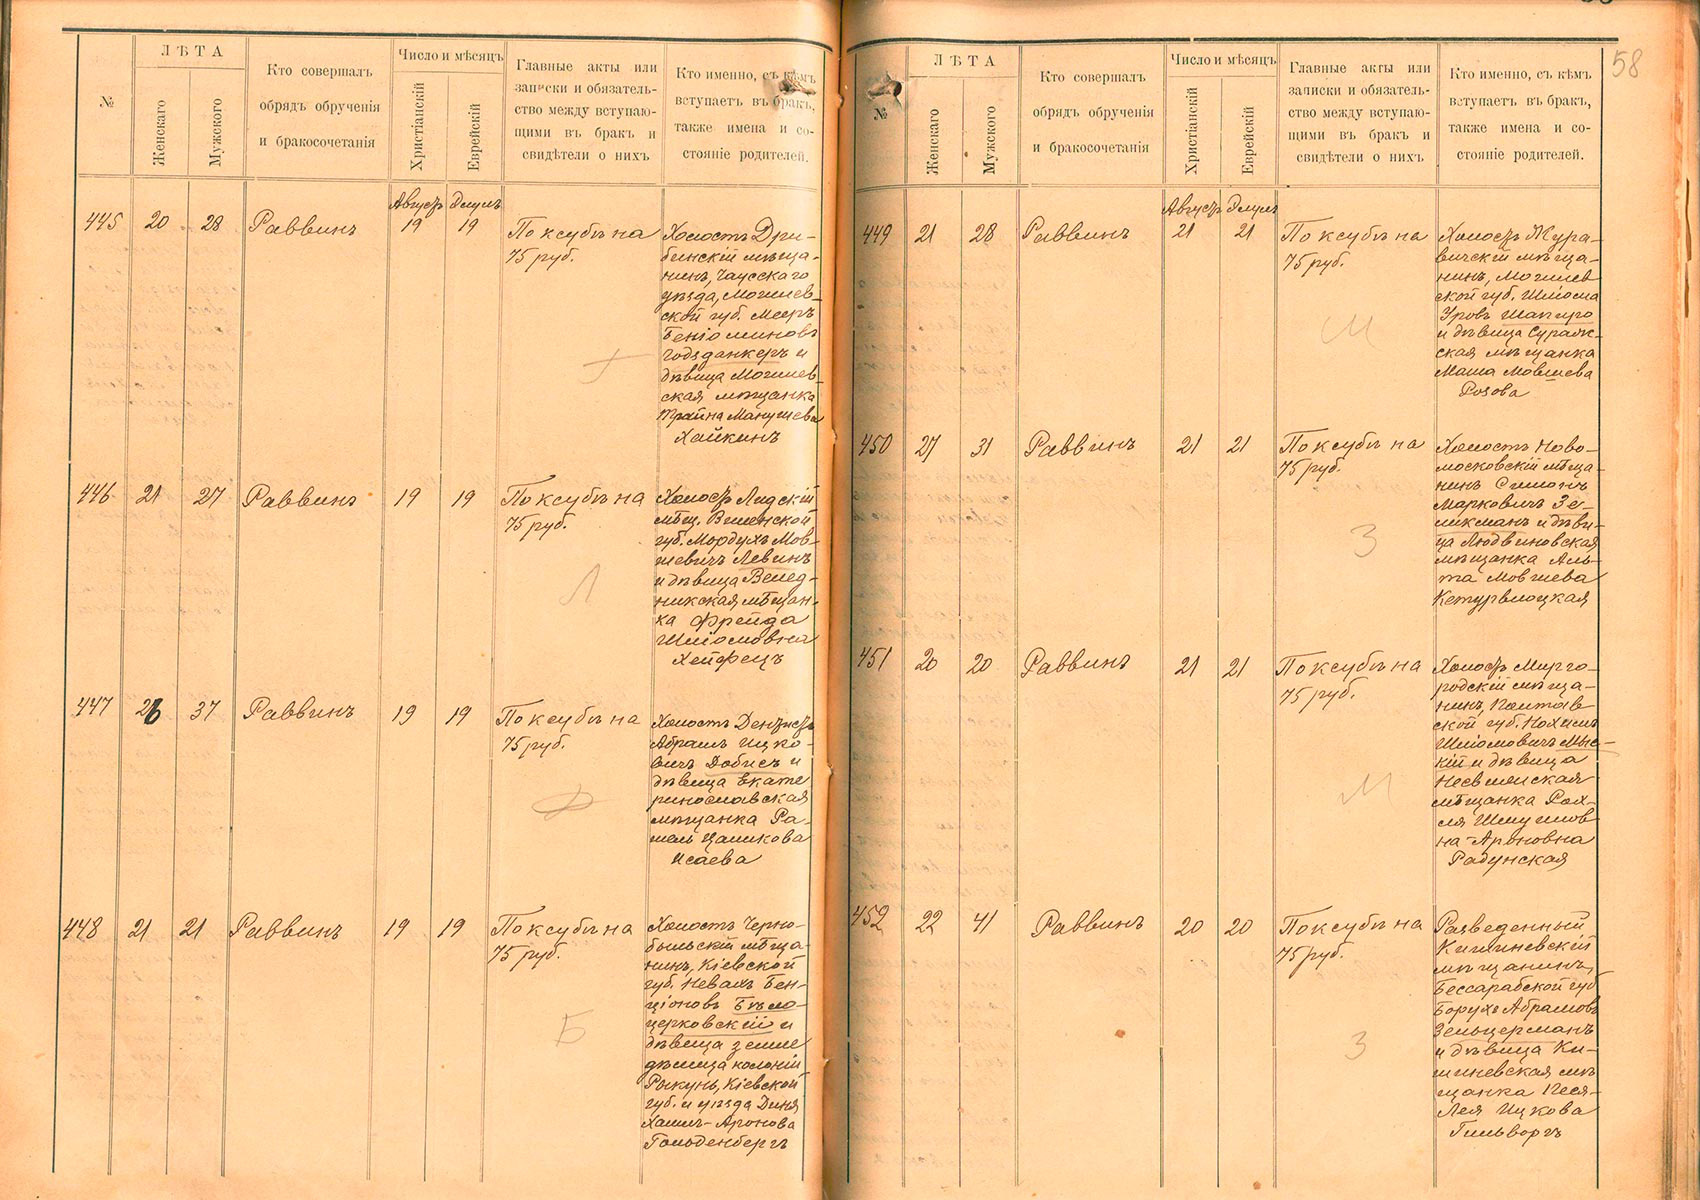 №
ЛѢТА
Женскаго
Мужского
Кто совершалъ
обрядъ обрученія
и бракосочетанія
Число и мѣсяцъ
Христіанскій
Еврейскій
Главные акты или
записки и обязатель-
ство между вступаю-
щими въ бракъ и
свидѣтели о нихъ
Кто именно, съ кѣмъ
вступаетъ въ бракъ,
также имена и со-
стояніе родителей.
Августъ Элулъ
445 20 28 Раввинъ 19 19
По ксубѣ на
75 руб.
Холостъ Дри-
бинскій мѣща-
нинъ, Чаусскаго
уѣзда, Могилев-
ской губ. Мееръ
Беніоминовъ
и
дѣвица Могилев-
ская мѣщанка
Трайна Манушева
Хайкинъ
446 21 27 Раввинъ 19 19
По ксубѣ на
75 руб.
Л
Холостъ Лидскій
мѣщ. Виленской
губ. Мордухъ Мов-
шевичъ Левинъ
и дѣвица Велед-
никская мѣщан-
ка Фрейда
Шліомовна
Хейфецъ
447 26 37 Раввинъ 19 19
По ксубѣ на
75 руб.
Холостъ
Абрамъ Ицко-
вичъ Добисъ и
дѣвица Екате
ринославская
мѣщанка Ра-
шель Цаликова
Исаева
448 21 21 Раввинъ 19 19
По ксубѣ на
75 руб.
Б
Холостъ Черно-
быльскій мѣща-
нинъ, Кіевской
губ. Невахъ Бен-
ціоновъ Бѣло-
церковскій и
дѣвица землe
дѣлица колоніи
Рыкунь, Кіевской
губ. и уѣзда Диня
Хаимъ-Аронова
Гольденбергъ
58
№
ЛѢТА
Женскаго
Мужского
Кто совершалъ
обрядъ обрученія
и бракосочетанія
Число и мѣсяцъ
Христіанскій
Еврейскій
Главные акты или
записки и обязатель-
ство между вступаю-
щими въ бракъ и
свидѣтели о нихъ
Кто именно, съ кѣмъ
вступаетъ въ бракъ,
также имена и со-
стояніе родителей.
Августъ Элулъ
449 21 28 Раввинъ 21 21
По ксубѣ на
75 руб.
Холостъ Жура-
вичскій мѣща-
нинъ, Могилев
ской губ. Шліома
Уровъ Шапиро
и дѣвица Сураж-
ская мѣщанка
Маша Мовшева
Розова
450 27 31 Раввинъ 21 21
По ксубѣ на
75 руб.
З
Холостъ Ново-
московскій мѣща-
нинъ Симонъ
Марковичъ Зе-
ликманъ и дѣви-
ца Людвиновская
мѣщанка Аль-
та Мовшева
Кетурвлоцкая
451 20 20 Раввинъ 21 21
По ксубѣ на
75 руб.
М
Холостъ Мирго-
родскій мѣща-
нинъ, Полтав
ской губ. Нохимъ
Шліомовичъ Мыс-
кій и дѣвица
Несвижская
мѣщанка Рох-
ля Шмуилов
на-Ароновна
Радунская
452 22 41 Раввинъ 20 20
По ксубѣ на
75 руб.
З
Разведенный
Кишиневскій
мѣщанинъ,
Бессарабской губ
Борухъ Абрамовъ
Зельцерманъ
и дѣвица Ки-
шиневская мѣ
щанка Песя-
Лея Ицкова
Гильворгъ